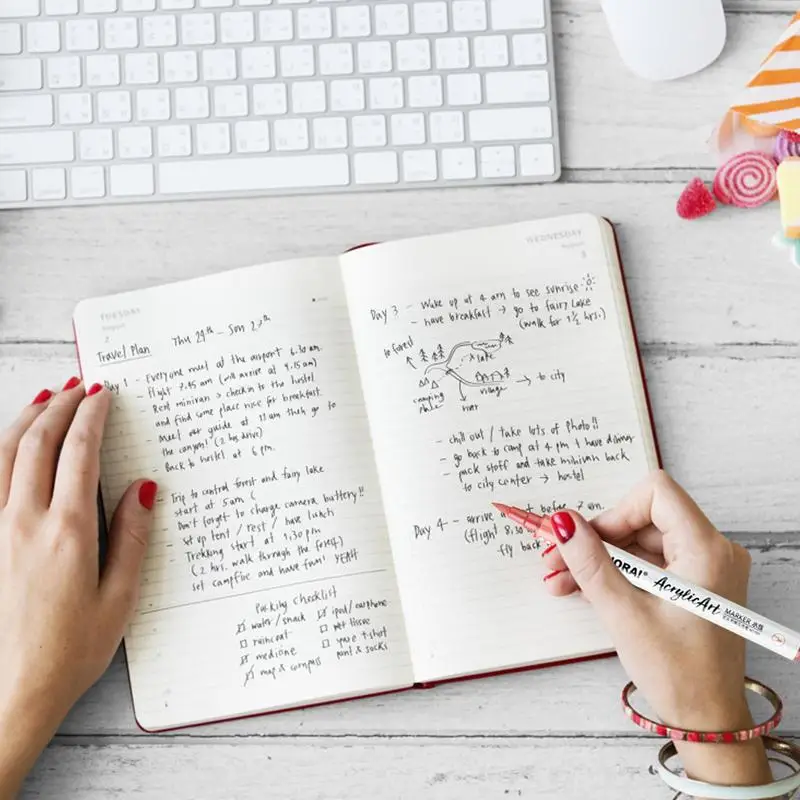 TUESDAY
August
2
Thu 29th - Sun 2
Travel Plan
Day 1 - Everyone meet at the airport 6.30 am
- flight 7.45 am (will arrive at 9.15 am)
- Rent minivan → checkin to the hostel
and find some place nice for breakfast.
- Meet our guide at 11 am then go to
the canyon! (2 hrs. drive)
- Back to hostel at 6 pm.
- Trip to central forest and fairy lake
start at 5 am
Don't forget to charge camera battery!!
- set up tent / rest / have lunch
- Trekking start at 1.30 pm
(2 hrs. walk through the forest)
set campfire and have fun! YEAH
Packing checklist
water / snack
raincoat
medicine
map & compass
ipod / earphone
wet tissue
spare t-shirt
pant & socks
WEDNESDAY
August
3
Day 3 - Wake up at 4 am to see sunrise
- have breakfast → go to fairy lake
(walk for 1 1/2 hrs.)
to forest
lake
camping
place
village
→ to city
river
- chill out / take lots of photo!!
- go back to camp at 4 pm & have dinner
- pack stuff and take minivan back
to city center → hostel
Day 4 - arrive before 7 am.
(flight 8.30
fly back
AcrylicArt
MARKER